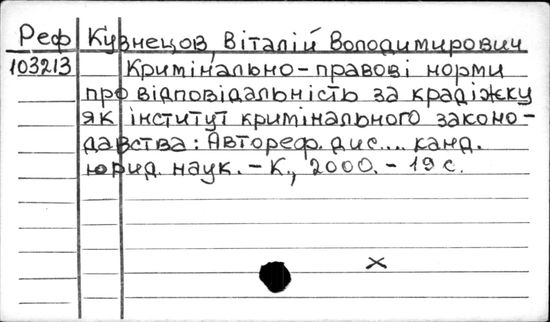 Реф Кузнецов, Віталій Володимирович
103213 Кримінально-правові норми
про відповідальність за крадіжку
як інститут кримінального законо-
давства: Автореф. дис.... канд.
юрид. наук. - К., 2000. - 19 с.
×